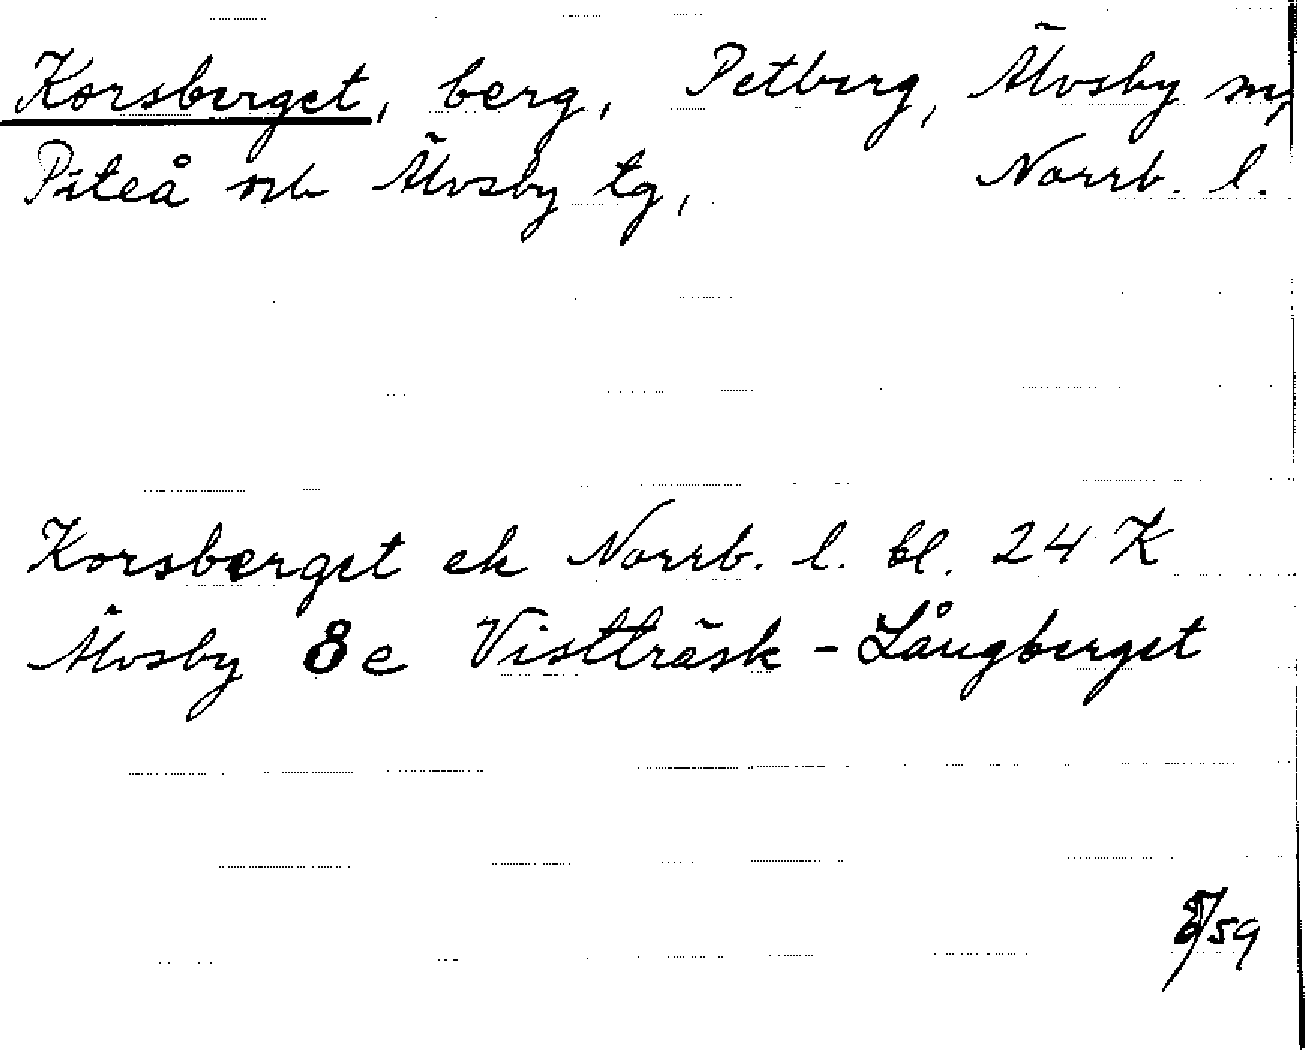 Korsberget, berg, Petberg, Älvsby sn,
Piteå nb Älvsby tg, Norrb. l.
Korsberget ek Norrb. l. bl. 24 K
Älvsby 8 e Vistträsk - Långberget
/59